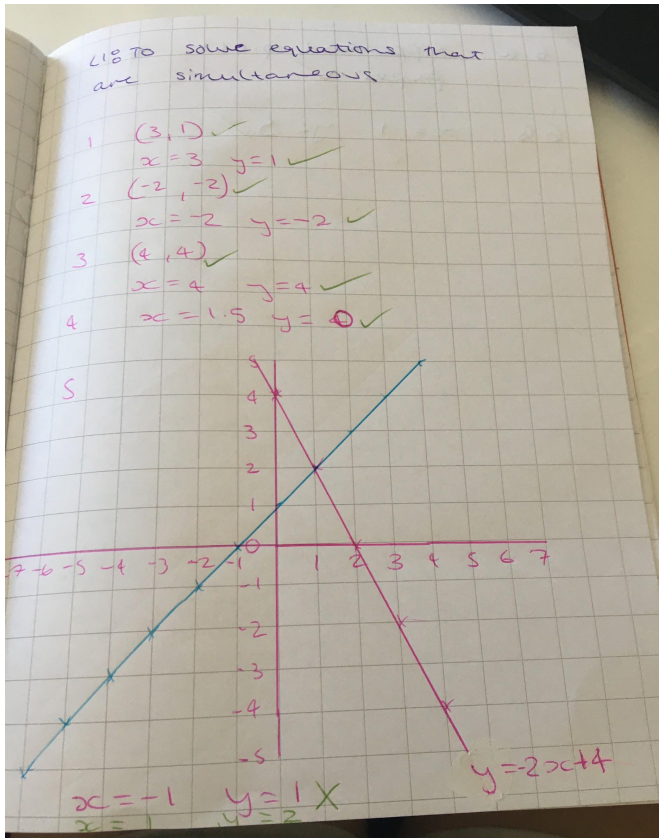 LI: TO solve equations that
are simultaneous
1 (3, 1) ✓
x = 3 y = 1 ✓
2 (-2, -2) ✓
x = -2 y = -2 ✓
3 (4, 4) ✓
x = 4 y = 4 ✓
4 x = 1.5 y = 0 ✓
5
5
4
3
2
1
0
-7 -6 -5 -4 -3 -2 -1 1 2 3 4 5 6 7
-1
-2
-3
-4
-5
y = -2x+4
x = -1 y = 1 X
x = 1 y = 2